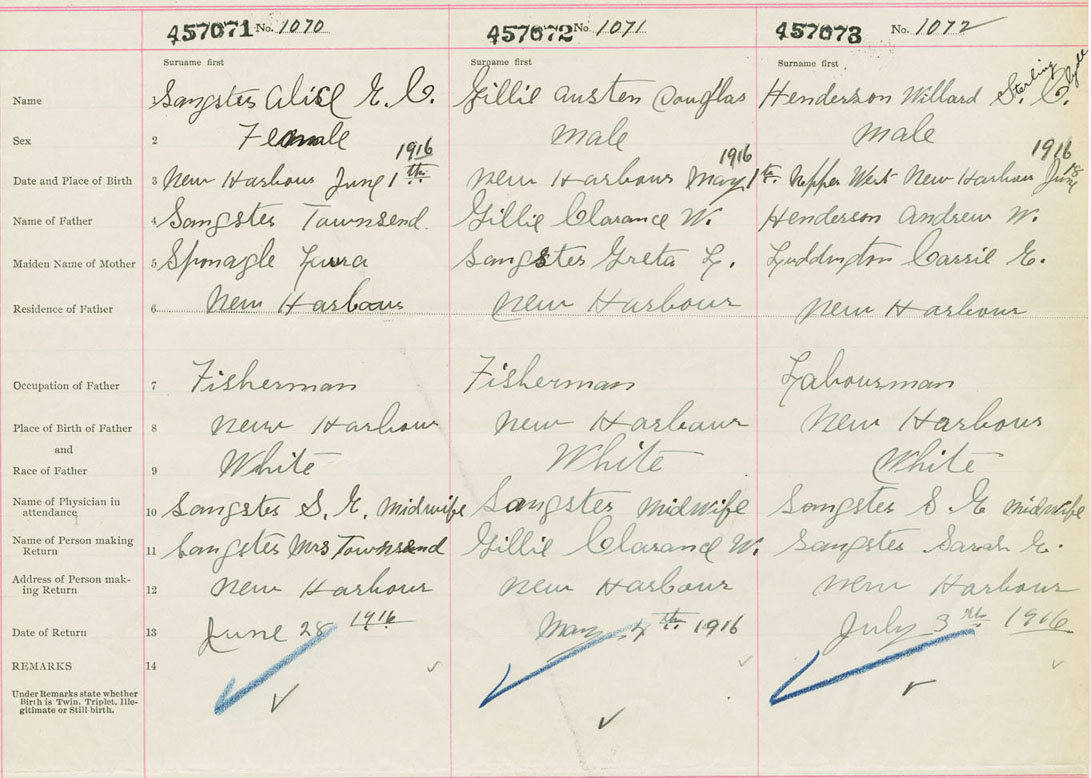 457071 No. 1070 457072 No. 1071 457073 No. 1072
Surname first Surname first Surname first
Sterling Clyde
Name 1 Sangster Alice E. C. Gillie Austen Douglas Henderson Willard S. C.
Sex 2 Female male male
1916 1916 1916
Date and Place of Birth 3 New Harbour June 1th. New Harbour May 1th. Upper West New Harbour June 18
Name of Father 4 Sangster Townsend. Gillie Clarance W. Henderson Andrew W.
Maiden Name of Mother 5 Sponagle Sangster Greta L. Luddington Carrie E.
Residence of Father 6 New Harbour New Harbour New Harbour
Occupation of Father 7 Fisherman Fisherman Labourman
Place of Birth of Father 8 New Harbour New Harbour New Harbour
and
Race of Father 9 White White White
Name of Physician in
attendance 10 Sangster S. E. Midwife Sangster Midwife Sangster S. E Midwife
Name of Person making
Return 11 Sangster Mrs Townsend Gillie Clarance W. Sangster Sarah E.
Address of Person mak-
ing Return 12 New Harbour New Harbour New Harbour
Date of Return 13 June 28 1916 May 4th. 1916 July 3rd. 1916
REMARKS 14
Under Remarks state whether
Birth is Twin, Triplet, Ille-
gitimate or Still-birth.